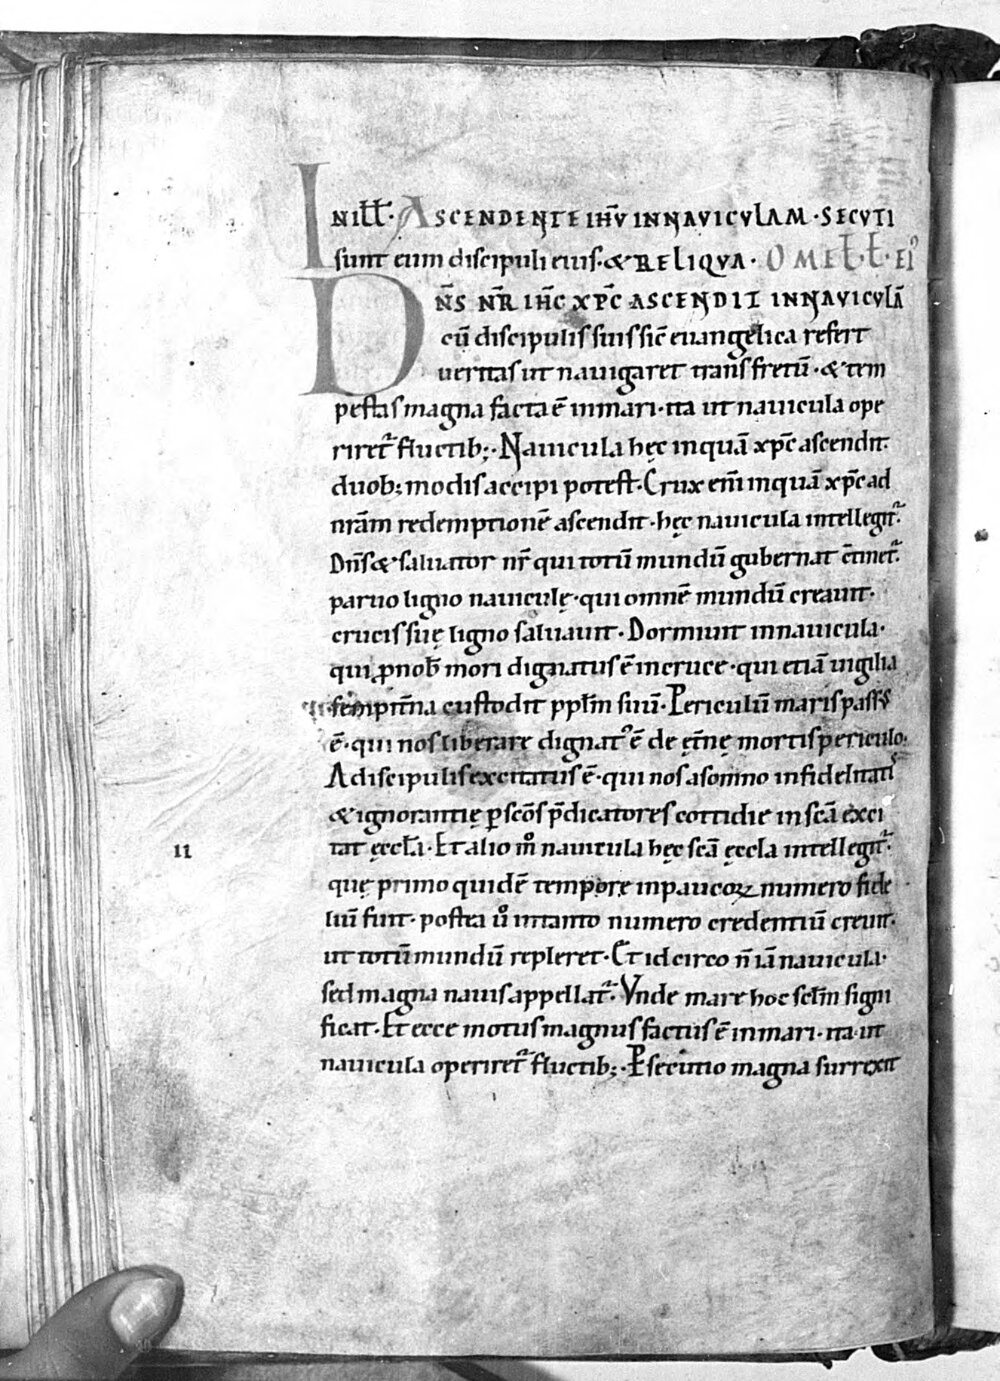 IN ILŁ· ASCENDENTE IHV̄ IN NAVICVLAM · SECVTI
sunt eum discipuli eius · & RELIQVA · OMEŁ· Ł· EIꝰ
DN̄S NR̄ IHC̄ XPC̄ ASCENDIT IN NAVICVLĀ
cū discipulis suis sic̄ euangelica refert
ueritas ut nauigaret trans fretū · & tem
pestas magna facta ē in mari · ita ut nauicula ope
riret᷑ fluctib; · Nauicula hęc in quā xpc̄ ascendit
duob; modis accipi potest · Crux eni̅ in quā xpc̄ ad
nrām redemptionē ascendit · hęc nauicula intellegit᷑·
Dn̄s & saluator nr̄ qui totū mundū gubernat & c̄tinet᷑·
paruo ligno nauiculę · qui omnē mundū creauit ·
crucis suę ligno saluauit · Dormiuit in nauicula ·
qui ꝓ nob̄ mori dignatus ē in cruce · qui etiā uigilia
sempit̄na custodit ppl̄m suū · Periculū maris passꝰ
ē · qui nos liberare dignatꝰ ē de ęt̄nę mortis periculo ·
A discipulis excitatus ē · qui nos a somno infidelitatis
& ignorantię ꝑ scōs p̄dicatores cottidie in scā exci
tat ęccłā · Et alio m̊ nauicula hęc scā ęccła intellegit᷑·
quę primo quidē tempore in paucoꝝ numero fide
liū fuit · postea ů in tanto numero credentiū creuit ·
ut totū mundū repleret · Et idcirco n̄ iā nauicula ·
sed magna nauis appellat᷑· Vnde mare hoc scl̄m signi
ficat · Et ecce motus magnus factus ē in mari · ita ut
nauicula operiret᷑ fluctib; · Ꝑsecutio magna surrexit
II